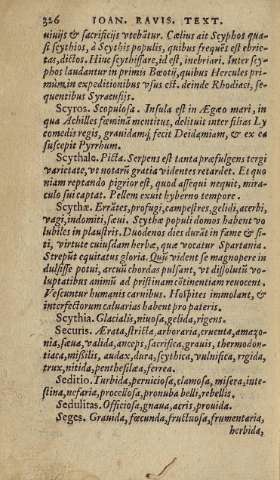 326 IOAN. RAVIS. TEXT.
uiuijs & sacrificijs vtebātur. Cælius ait Scyphos qua-
si scythios, à Scythis populis, quibus frequēs est ebrie-
tas, dictos. Hinc scythissare, id est, inebriari. Inter scy-
phos laudantur in primis Bœotij, quibus Hercules pri-
mùm in expeditionibus vsus est. deinde Rhodiaci, se-
quentibus Syracusijs.
Scyros. Scopulosa. Insula est in Ægæo mari, in
qua Achilles fœminā mentitus, delituit inter filias Ly
comedis regis, grauidamq́; fecit Deidamiam, & ex ea
suscepit Pyrrhum.
Scythale. Picta. Serpens est tanta præfulgens tergi
varietate, vt notarū gratia videntes retardet. Et quo
niam reptando pigrior est, quod assequi nequit, mira-
culo sui captat. Pellem exuit hyberno tempore.
Scythæ. Errātes, profugi, campestres, gelidi, acerbi,
vagi, indomiti, sæui. Scythæ populi domos habent vo
lubiles in plaustris. Duodenos dies durāt in fame & si-
ti, virtute cuiusdam herbæ, quæ vocatur Spartania.
Strepūt equitatus gloria. Quū vident se magnopere in
dulsisse potui, arcuū chordas pulsant, vt dissolutū vo-
luptatibus animū ad pristinam cōtinentiam reuocent.
Vescuntur humanis carnibus. Hospites immolant, &
interfectorum caluarias habent pro pateris.
Scythia. Glacialis, niuosa, gelida, rigens.
Securis. Ærata, stricta, arboraria, cruenta, amazo-
nia, sæua, valida, anceps, sacrifica, grauis, thermodon-
tiaca, missilis, audax, dura, scythica, vulnifica, rigida,
trux, nitida, penthesilæa, ferrea.
Seditio. Turbida, perniciosa, clamosa, misera, inte-
stina, nefaria, procellosa, pronuba belli, rebellis.
Sedulitas. Officiosa, gnaua, acris, prouida.
Seges. Grauida, fœcunda, fructuosa, frumentaria,
herbida,